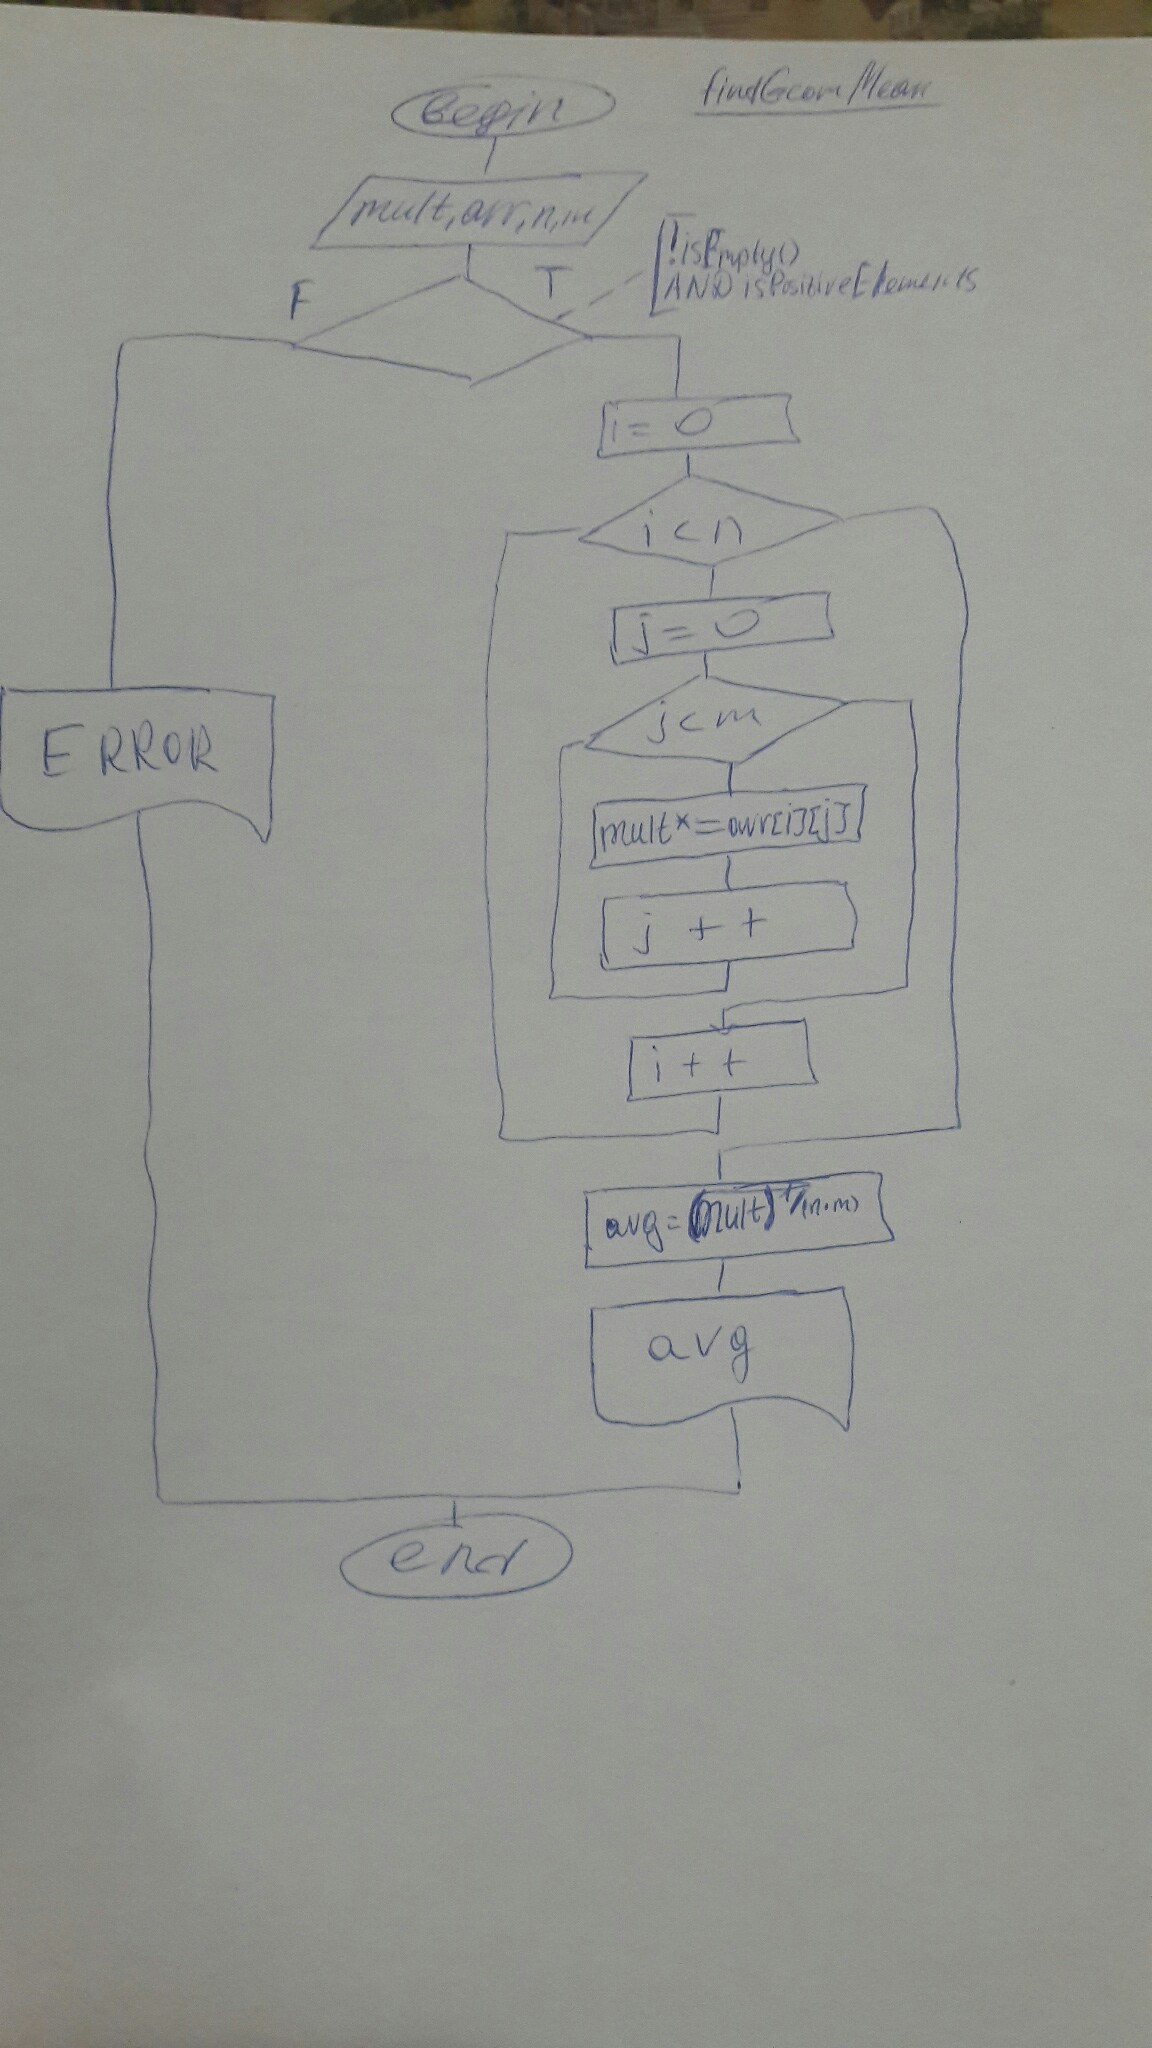 findGeomMean
Begin
mult, arr, n, m
!isEmpty()
AND isPositiveElements
F
T
i = 0
i < n
j = 0
j < m
mult *= arr[i][j]
j ++
i ++
avg = (mult)^1/(n·m)
avg
ERROR
end